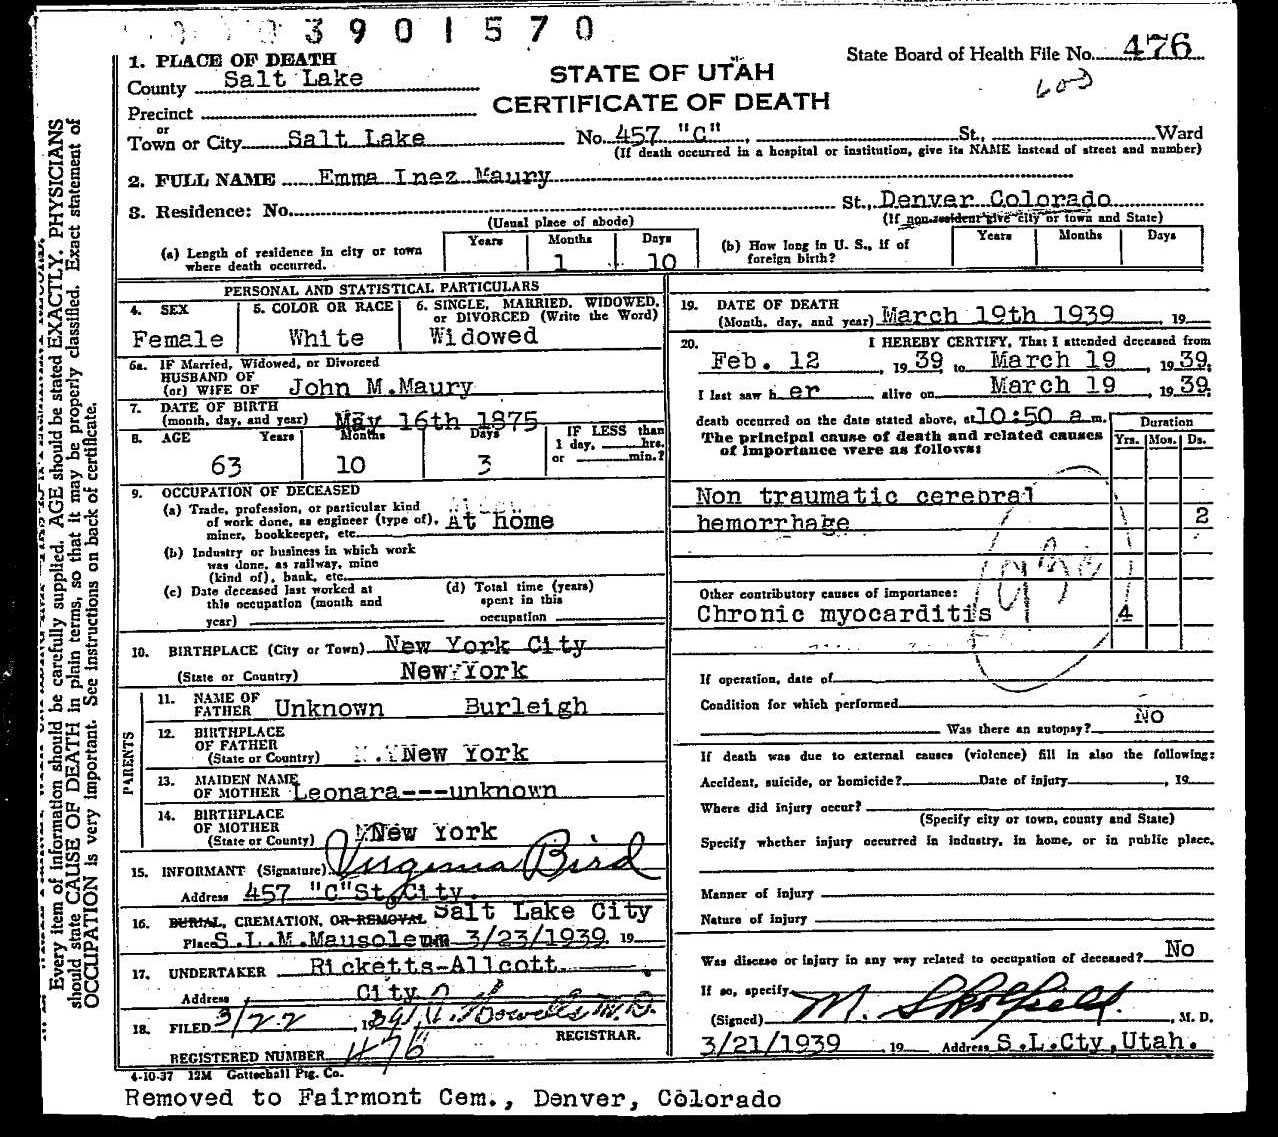 3901570
State Board of Health File No. 476
603
STATE OF UTAH
CERTIFICATE OF DEATH
1. PLACE OF DEATH
County Salt Lake
Precinct
or
Town or City Salt Lake No. 457 "C", St., Ward
(If death occurred in a hospital or institution, give its NAME instead of street and number)
2. FULL NAME Emma Inez Maury
3. Residence: No. St., Denver Colorado
(Usual place of abode) (If non-resident give city or town and State)
(a) Length of residence in city or town where death occurred. Years Months 1 Days 10
(b) How long in U. S., if of foreign birth? Years Months Days
PERSONAL AND STATISTICAL PARTICULARS
4. SEX Female
5. COLOR OR RACE White
6. SINGLE, MARRIED, WIDOWED, or DIVORCED (Write the Word) Widowed
6a. IF Married, Widowed, or Divorced
HUSBAND OF
(or) WIFE OF John M.Maury
7. DATE OF BIRTH
(month, day, and year) May 16th 1875
8. AGE Years 63 Months 10 Days 3
IF LESS than
1 day, hrs.
or min.?
9. OCCUPATION OF DECEASED
(a) Trade, profession, or particular kind
of work done, as engineer (type of), At home
miner, bookkeeper, etc.
(b) Industry or business in which work
was done, as railway, mine
(kind of), bank, etc.
(c) Date deceased last worked at
this occupation (month and
year)
(d) Total time (years)
spent in this
occupation
10. BIRTHPLACE (City or Town) New York City
(State or Country) New York
PARENTS
11. NAME OF
FATHER Unknown Burleigh
12. BIRTHPLACE
OF FATHER
(State or Country) New York
13. MAIDEN NAME
OF MOTHER Leonara---unknown
14. BIRTHPLACE
OF MOTHER
(State or County) New York
15. INFORMANT (Signature) Virginia Bird
Address 457 "C"St,City.
16. BURIAL, CREMATION, OR REMOVAL Salt Lake City
Place S.L.M.Mausoleum 3/23/1939 19
17. UNDERTAKER Ricketts-Allcott
Address City
18. FILED 3/22, 1939 Howells M.D.
REGISTRAR.
REGISTERED NUMBER 476
19. DATE OF DEATH
(Month, day, and year) March 19th 1939, 19
20. I HEREBY CERTIFY, That I attended deceased from
Feb. 12, 1939, to March 19, 1939;
I last saw h er alive on March 19, 1939;
death occurred on the date stated above, at 10:50 a m.
The principal cause of death and related causes
of importance were as follows:
Duration
Yrs. Mos. Ds.
Non traumatic cerebral
hemorrhage 2
Other contributory causes of importance:
Chronic myocarditis 4
If operation, date of
Condition for which performed
Was there an autopsy? No
If death was due to external causes (violence) fill in also the following:
Accident, suicide, or homicide? Date of injury , 19
Where did injury occur?
(Specify city or town, county and State)
Specify whether injury occurred in industry, in home, or in public place.
Manner of injury
Nature of injury
Was disease or injury in any way related to occupation of deceased? No
If so, specify
(Signed) M. Skolfield, M. D.
3/21/1939, 19 Address S.L.Cty,Utah.
4-10-37 12M Gottschall Ptg. Co.
Removed to Fairmont Cem., Denver, Colorado
Every item of information should be carefully supplied. AGE should be stated EXACTLY. PHYSICIANS
should state CAUSE OF DEATH in plain terms, so that it may be properly classified. Exact statement of
OCCUPATION is very important. See instructions on back of certificate.